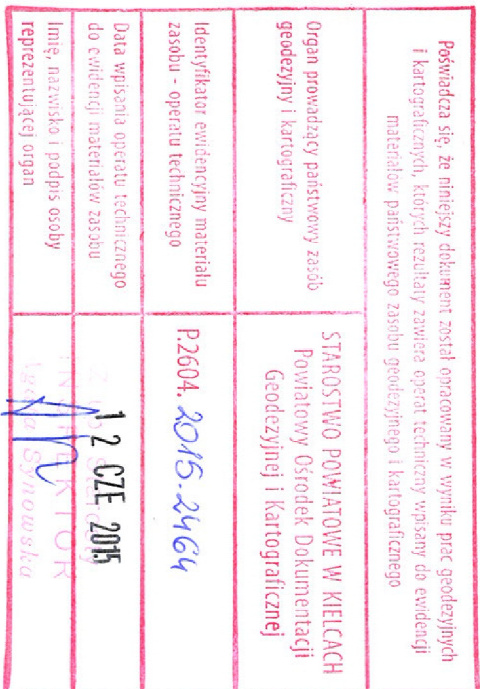 Poświadcza się, że niniejszy dokument został opracowany w wyniku prac geodezyjnych
i kartograficznych, których rezultaty zawiera operat techniczny wpisany do ewidencji
materiałów państwowego zasobu geodezyjnego i kartograficznego
Organ prowadzący państwowy zasób
geodezyjny i kartograficzny
STAROSTWO POWIATOWE W KIELCACH
Powiatowy Ośrodek Dokumentacji
Geodezyjnej i Kartograficznej
Identyfikator ewidencyjny materiału
zasobu - operatu technicznego
P.2604. 2015.2464
Data wpisania operatu technicznego
do ewidencji materiałów zasobu
1 2 CZE 2015
Imię, nazwisko i podpis osoby
reprezentującej organ
INSPEKTOR